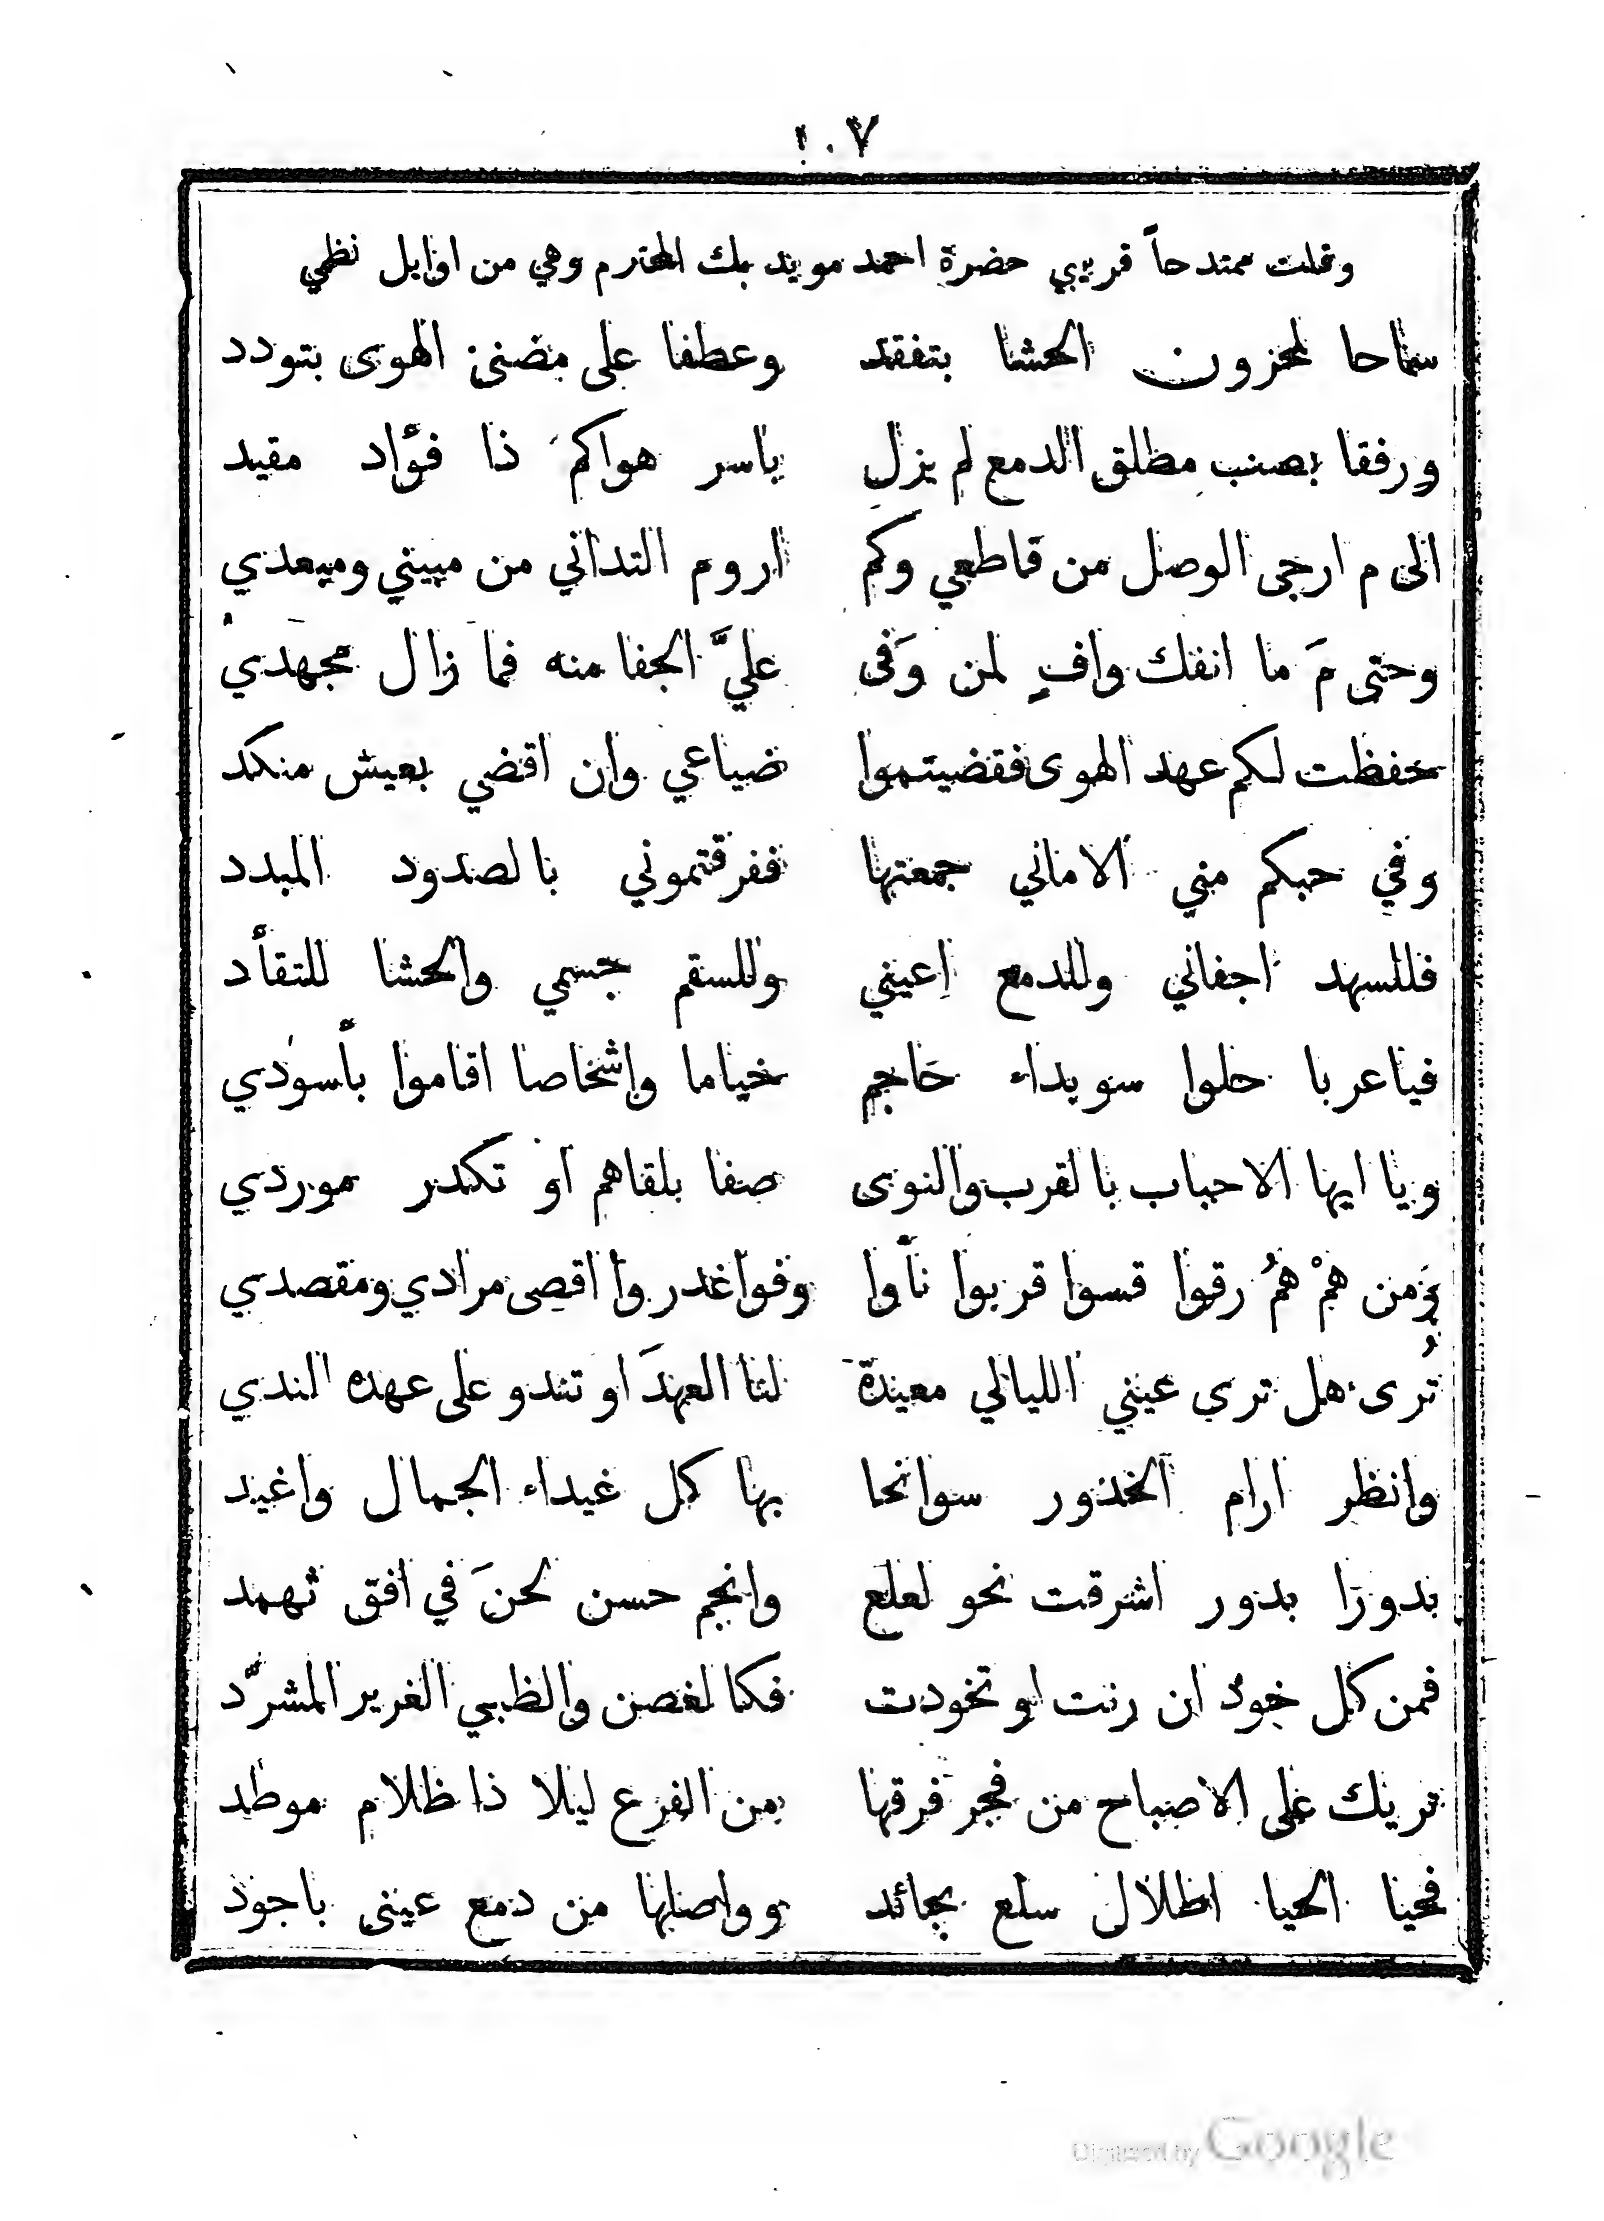 ١٠٧
وقلت ممتدحاً قريبي حضرة احمد مويد بك المحترم وهي من اوايل نظمي
سماحا لمحزون الحشا بتفقد وعطفا على مضنى الهوى بتودد
ورفقا بصب مطلق الدمع لم يزل باسر هواكم ذا فؤاد مقيد
الى م ارجى الوصل من قاطعي وكم اروم التداني من مبيني ومبعدي
وحتى مَ ما انفك وافٍ لمن وَفى عليَّ الجفا منه فما زال مجهدي
حفظت لكم عهد الهوى فقضيتموا ضياعي وان اقضي بعيش منكد
وفي حبكم مني الاماني جمعتها ففرقتموني بالصدود المبدد
فللسهد اجفاني وللدمع اعيني وللسقم جسمي والحشا للتقأد
فياعربا حلوا سويداء حَاجم خياما واشخاصا اقاموا بأسودي
ويا ايها الاحباب بالقرب والنوى صفا بلقاهم او تكدر موردي
وَمن همْ همُ رقوا قسوا قربوا نأوا وفوا غدروا اقصى مرادي ومقصدي
تُرى هل ترى عيني الليالي معيدة لنا العهدَ او تندو على عهده الندي
وانظر ارام الخدور سوانحا بها كل غيداء الجمال واغيد
بدورا بدور اشرقت نحو لعلع وانجم حسن لحنَ في افق ثهمد
فمن كل خود ان رنت او تخودت فكالغصن والظبي الغرير المشرَّد
تريك على الاصباح من فجر فرقها من الفرع ليلا ذا ظلام موطد
فحيا الحيا اطلال سلع بجائد وواصلها من دمع عيني باجود
Digitized by Google